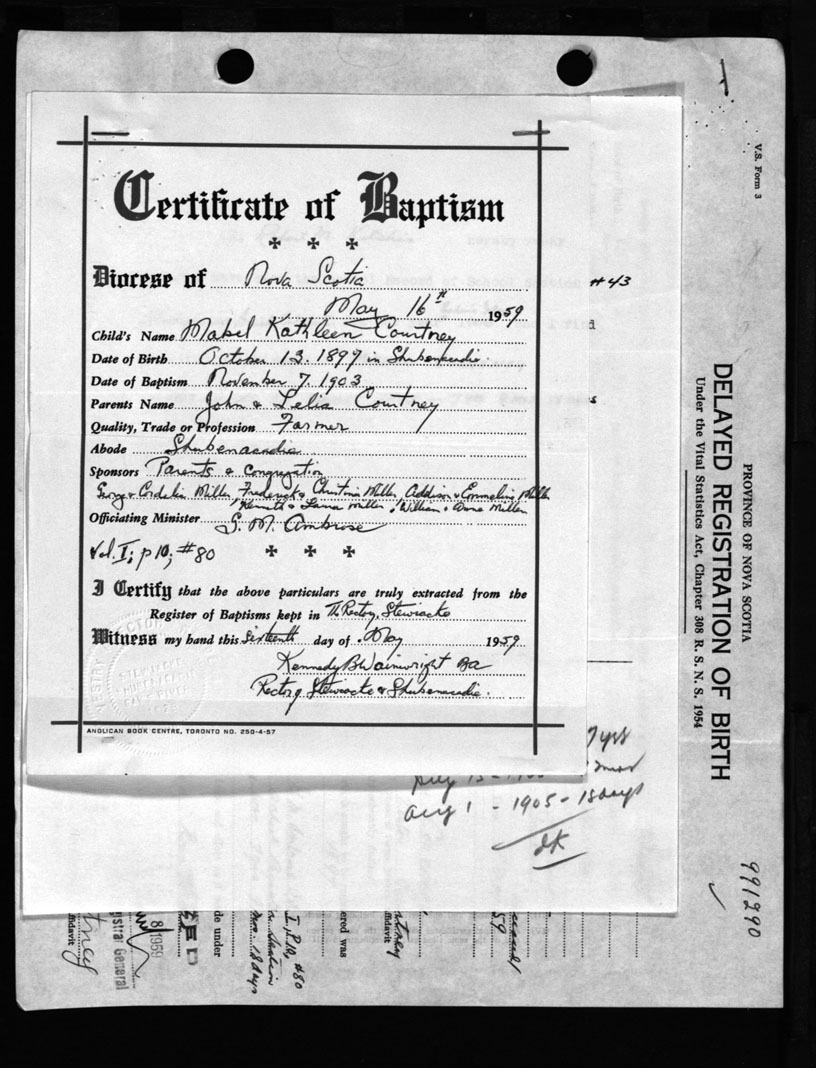 Certificate of Baptism
Diocese of Nova Scotia
May 16th 1959
Child's Name Mabel Kathleen Courtney
Date of Birth October 13. 1897 in Shubenacadie.
Date of Baptism November 7. 1903
Parents Name John & Lelia Courtney
Quality, Trade or Profession Farmer
Abode Shubenacadie
Sponsors Parents & Congregation
George & Cordelia Miller, Frederick & Christina Miller, Addison & Emmeline Miller
Kenneth & Laura Miller, William & Anna Miller
Officiating Minister G. M. Ambrose
Vol. I; p 10; #80
I Certify that the above particulars are truly extracted from the
Register of Baptisms kept in The Rectory, Stewiacke
Witness my hand this Sixteenth day of May 1959
Kennedy B Wainwright BA
Rector of Stewiacke & Shubenacadie.
ANGLICAN BOOK CENTRE, TORONTO NO. 250-4-57
#43
7 yrs
Aug 1 - 1905 - 18 days
V.S. Form 3
PROVINCE OF NOVA SCOTIA
DELAYED REGISTRATION OF BIRTH
Under the Vital Statistics Act, Chapter 308 R. S. N. S. 1954
991290
ered was
I, P.10, #80
18 days
de under
8 1959
istrar General
tney
ffidavit
tney
ffidavit
59